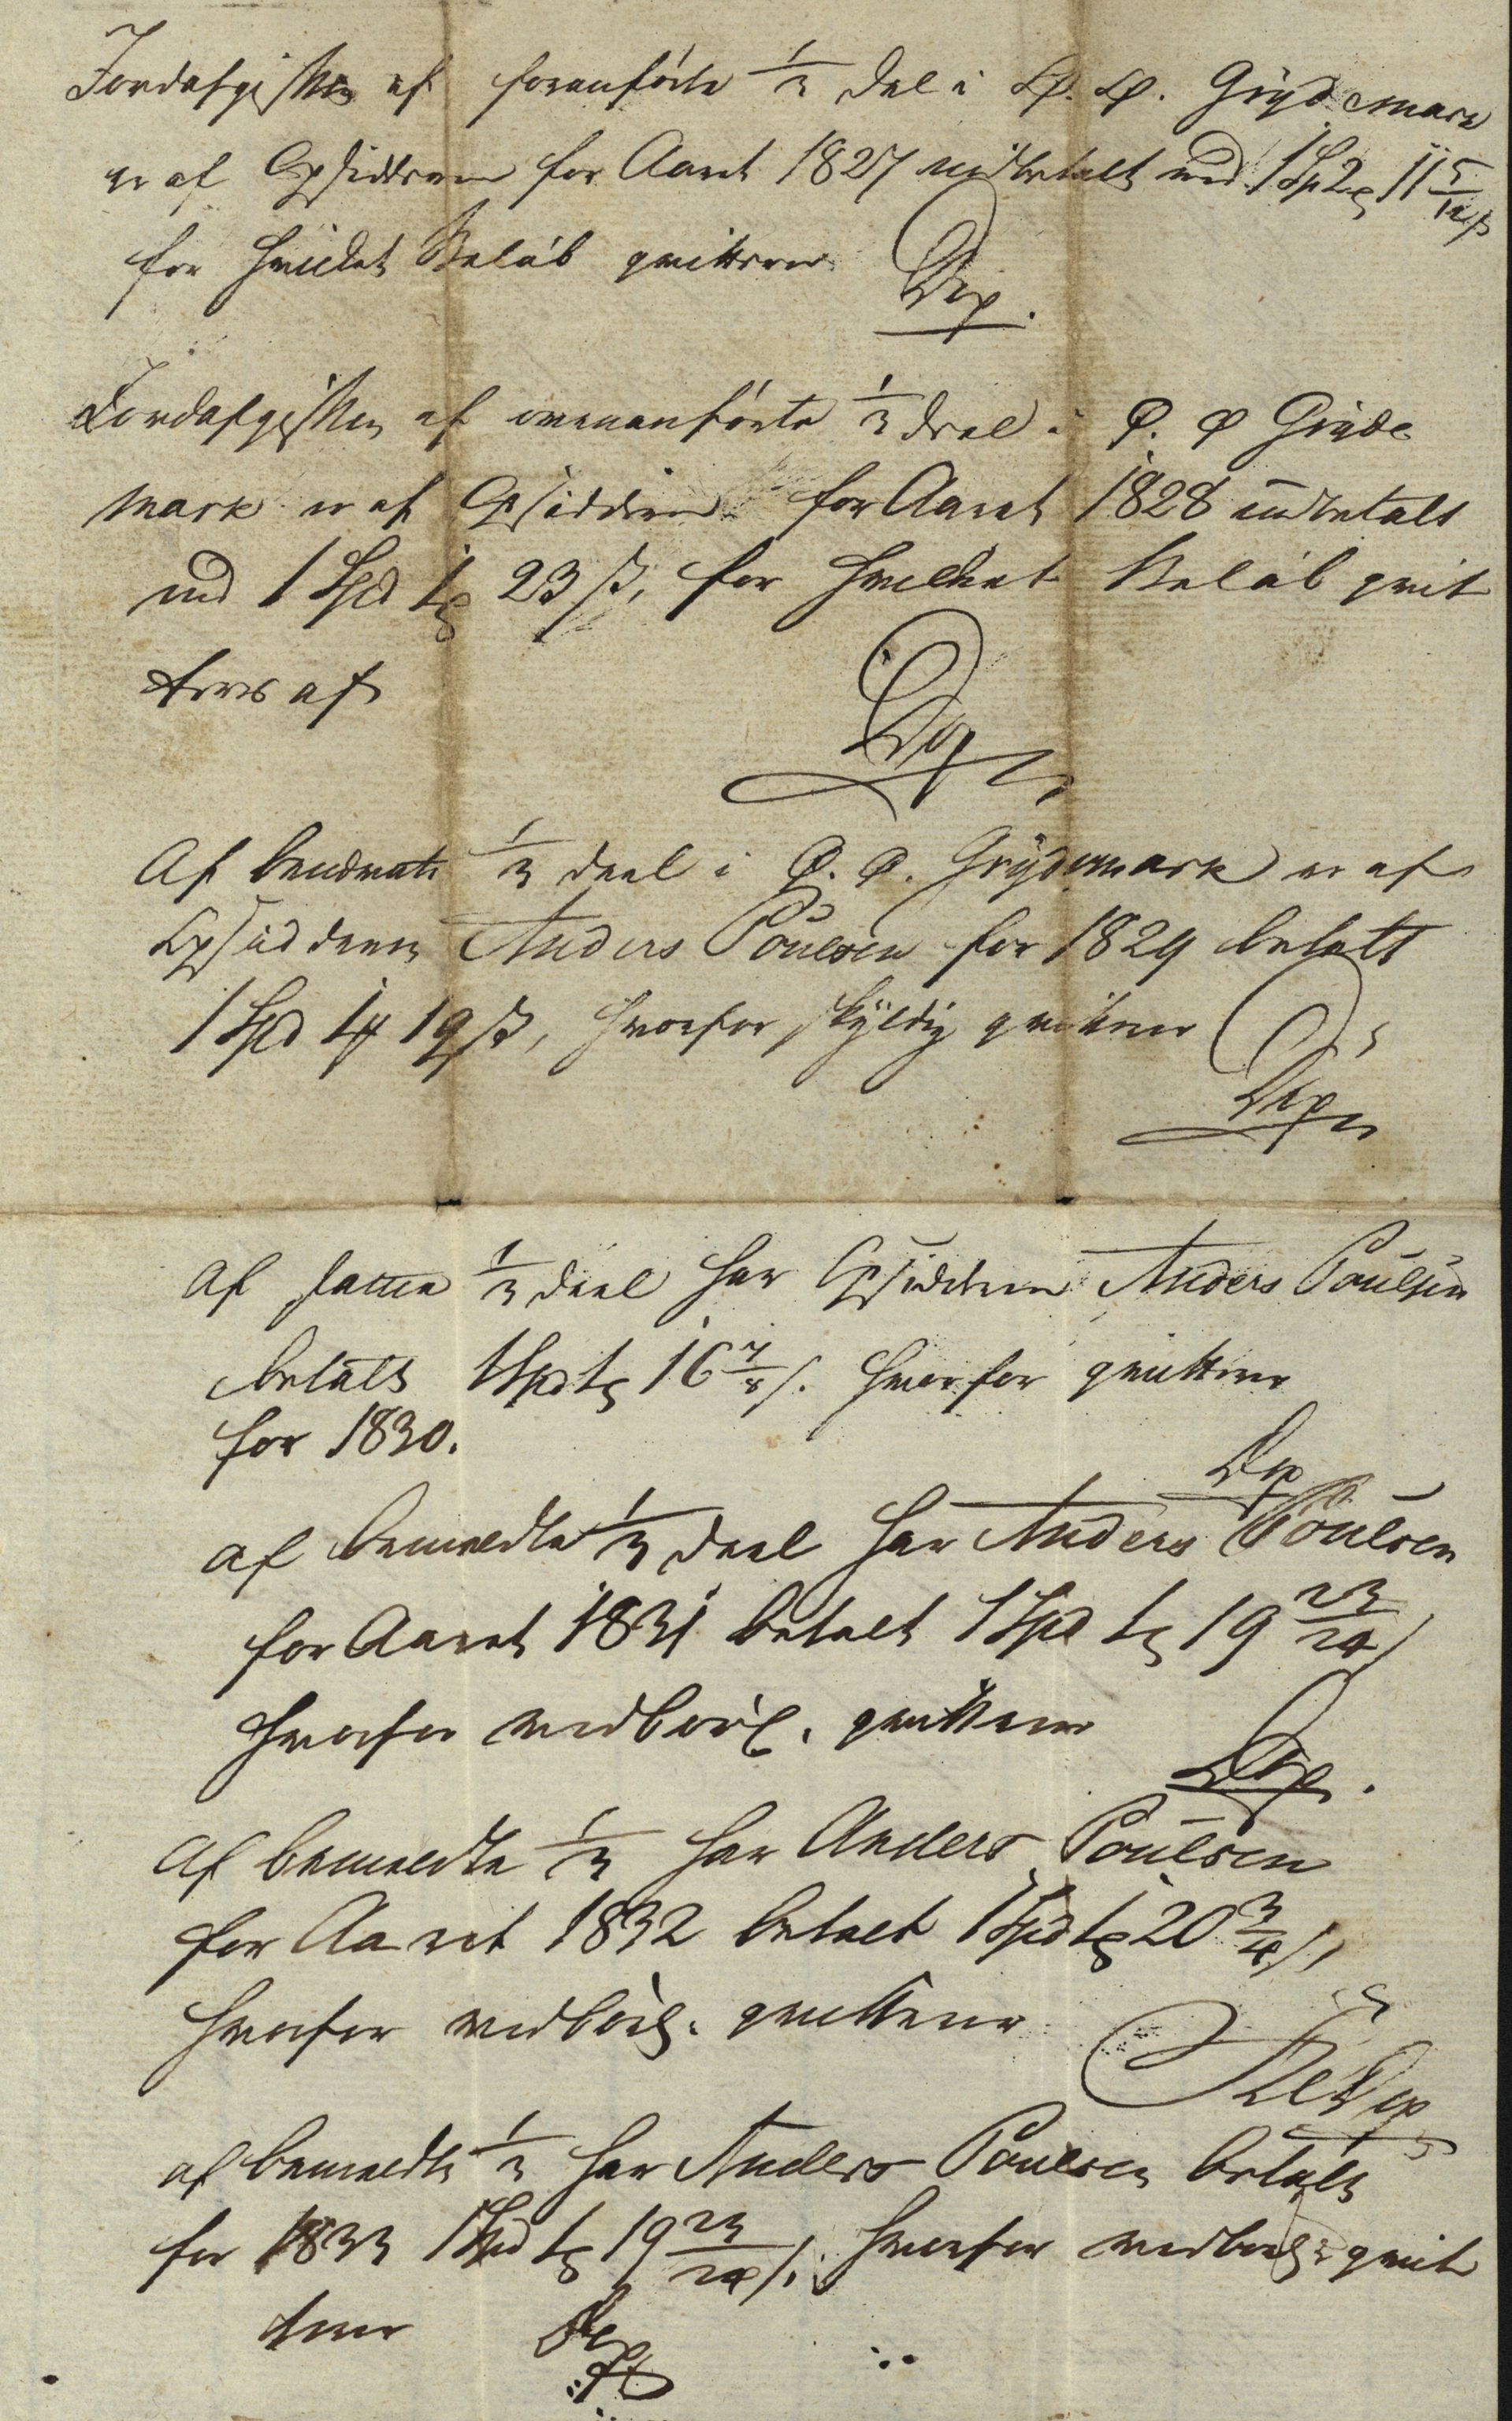 Jordafgiften af foranførte 1/3 Del i Ø. Ø. Grydemark
er af Opsidderen for Aaret 1827 indbetalt med 1 Spd 2 11 5/12 ß
for hvilket Beløb qvitteres
Jordafgiften af ovenanførte 1/3 Deel i Ø. Ø Gryde
mark er af Opsidderen for Aaret 1828 indbetalt
med 1 Spd 1 23 ß, for hvilket Beløb qvit
teres af
Af benævnte 1/3 deel i Ø. Ø. Grydemark er af
Opsidderen Anders Poulsen for 1829 betalt
1 Spd 1 19 ß, hvorfor skyldig qvitterer
Af samme 1/3 deel har Opsidderen Anders Poulsen
betalt 1 Spd 1 16 7/8 ß. hvorfor qvitterer
for 1830.
af bemeldte 1/3 deel har Anders Poulsen
for Aaret 1831 betalt 1 Spd 1 19 23/24 ß
hvorfor vedbørl. qvitteres
Af bemeldte 1/3 har Anders Poulsen
for Aaret 1832 betalt 1 Spd 1 20 3/4 ß,
hvorfor vedbørl. qvitterer
af bemeldte 1/3 har Anders Poulsen betalt
for 1833 1 Spd 1 19 23/24 ß. hvorfor vedbørl: qvit
terer